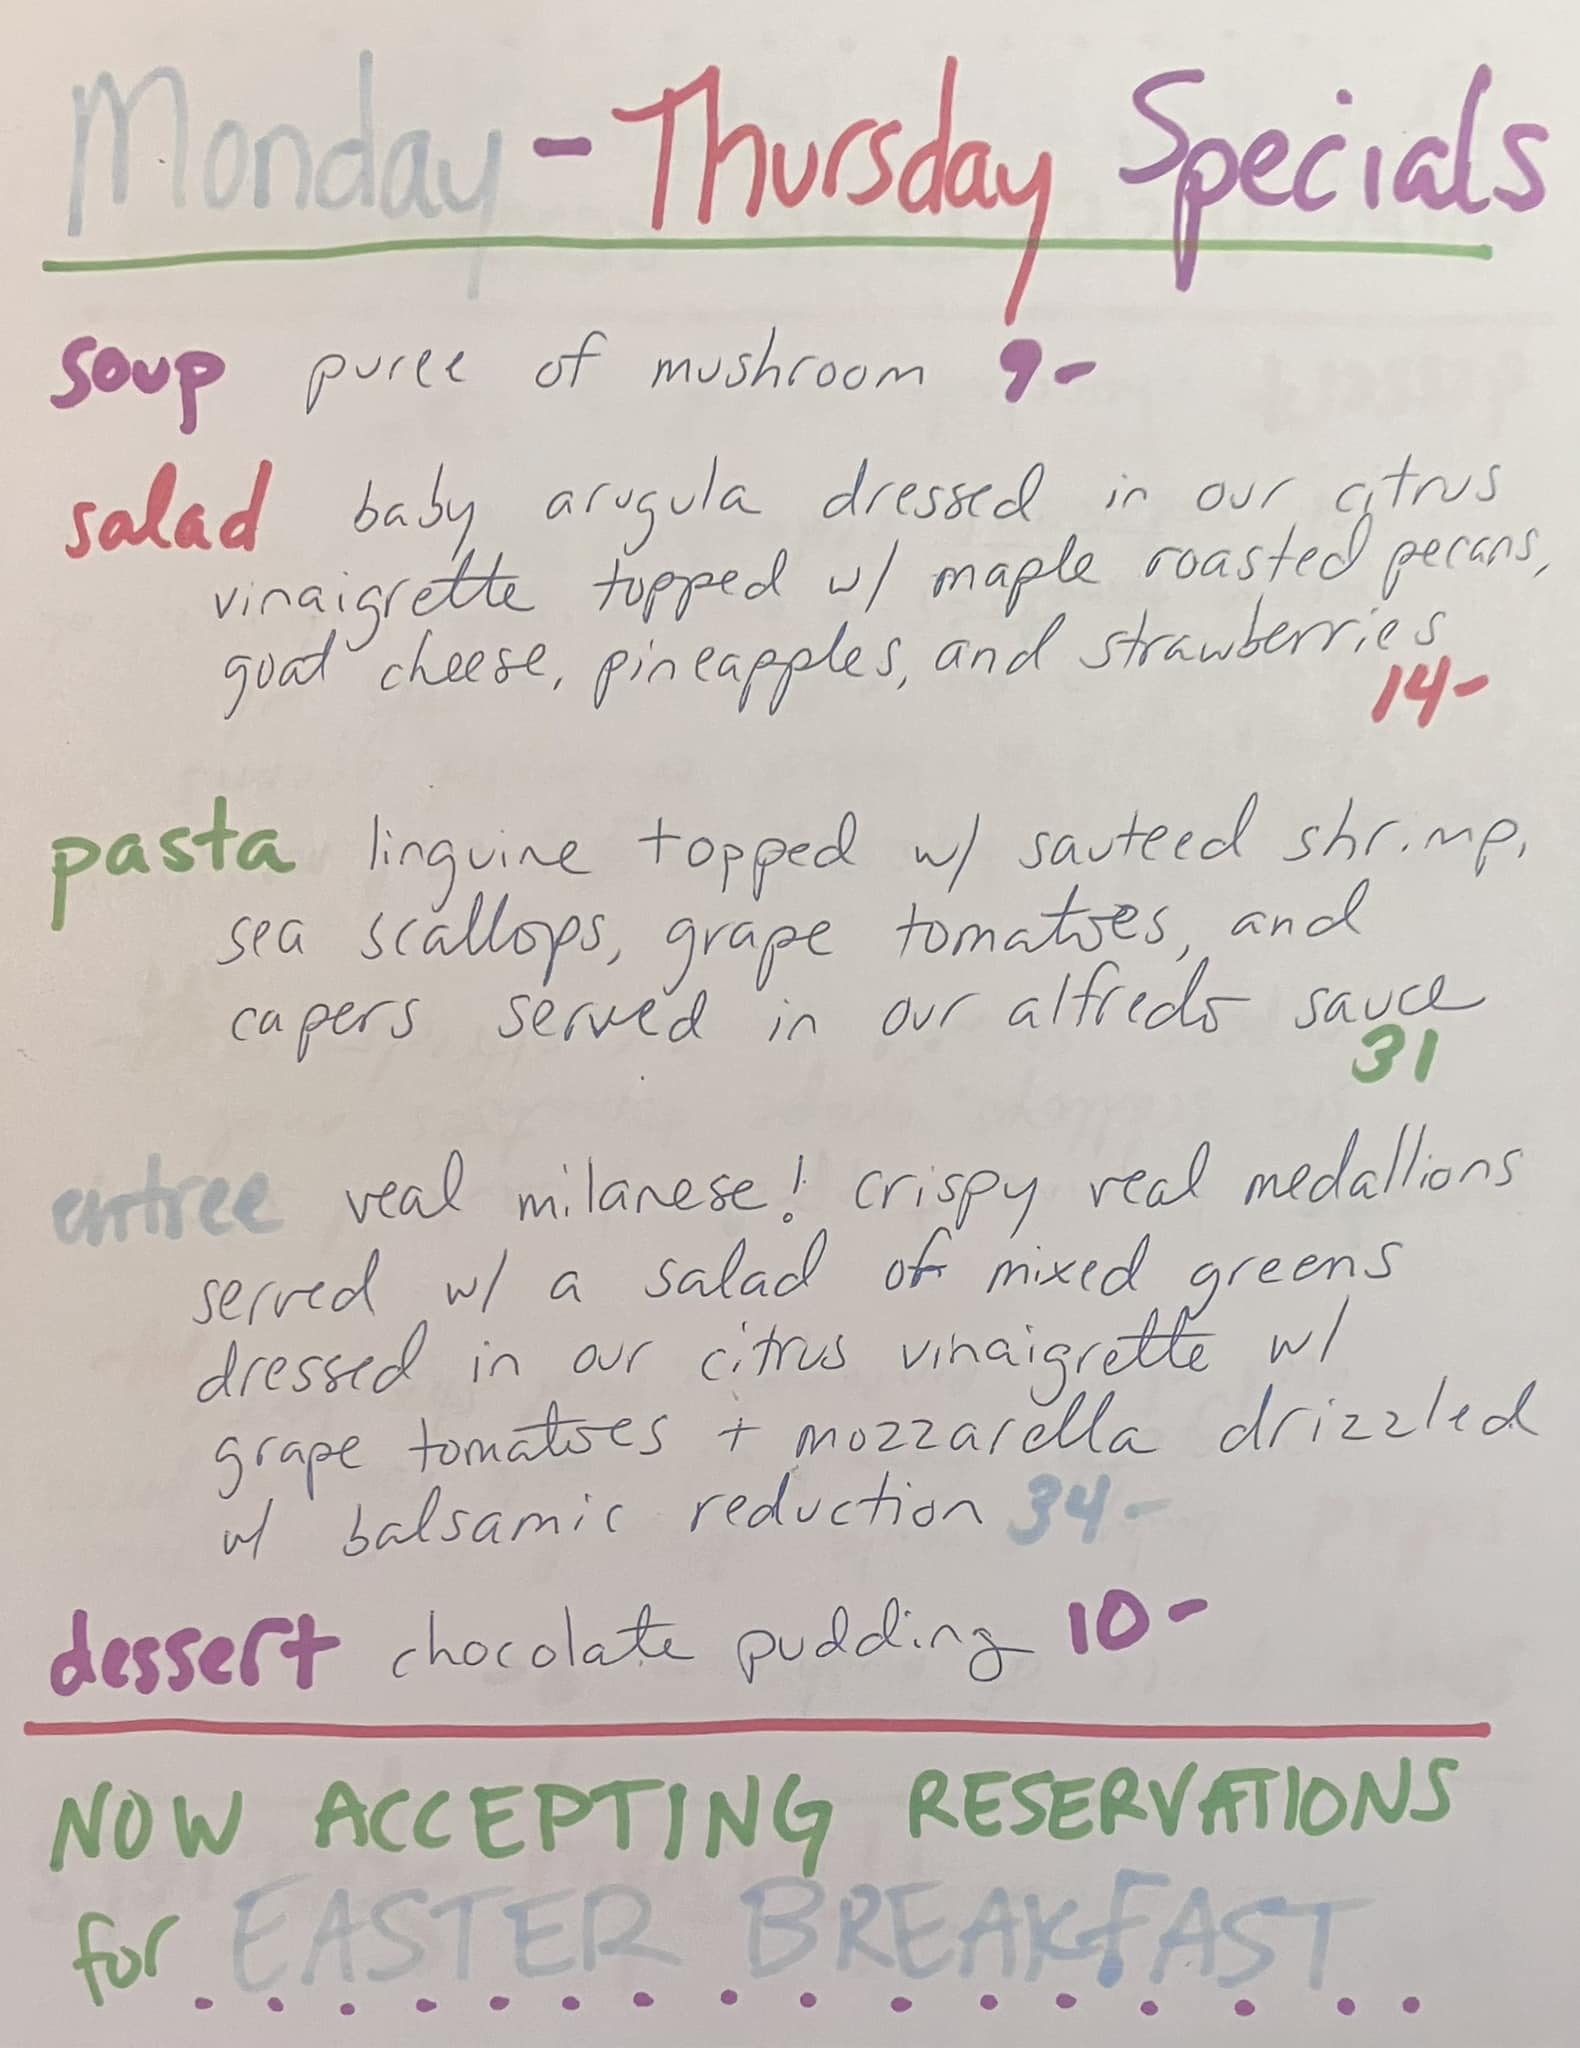 Monday - Thursday Specials
soup puree of mushroom 9-
salad baby arugula dressed in our citrus
vinaigrette topped w/ maple roasted pecans,
goat cheese, pineapples, and strawberries
14-
pasta linguine topped w/ sauteed shrimp,
sea scallops, grape tomatoes, and
capers served in our alfredo sauce
31
entree veal milanese! crispy veal medallions
served w/ a salad of mixed greens
dressed in our citrus vinaigrette w/
grape tomatoes + mozzarella drizzled
w/ balsamic reduction 34-
dessert chocolate pudding 10-
NOW ACCEPTING RESERVATIONS
for EASTER BREAKFAST